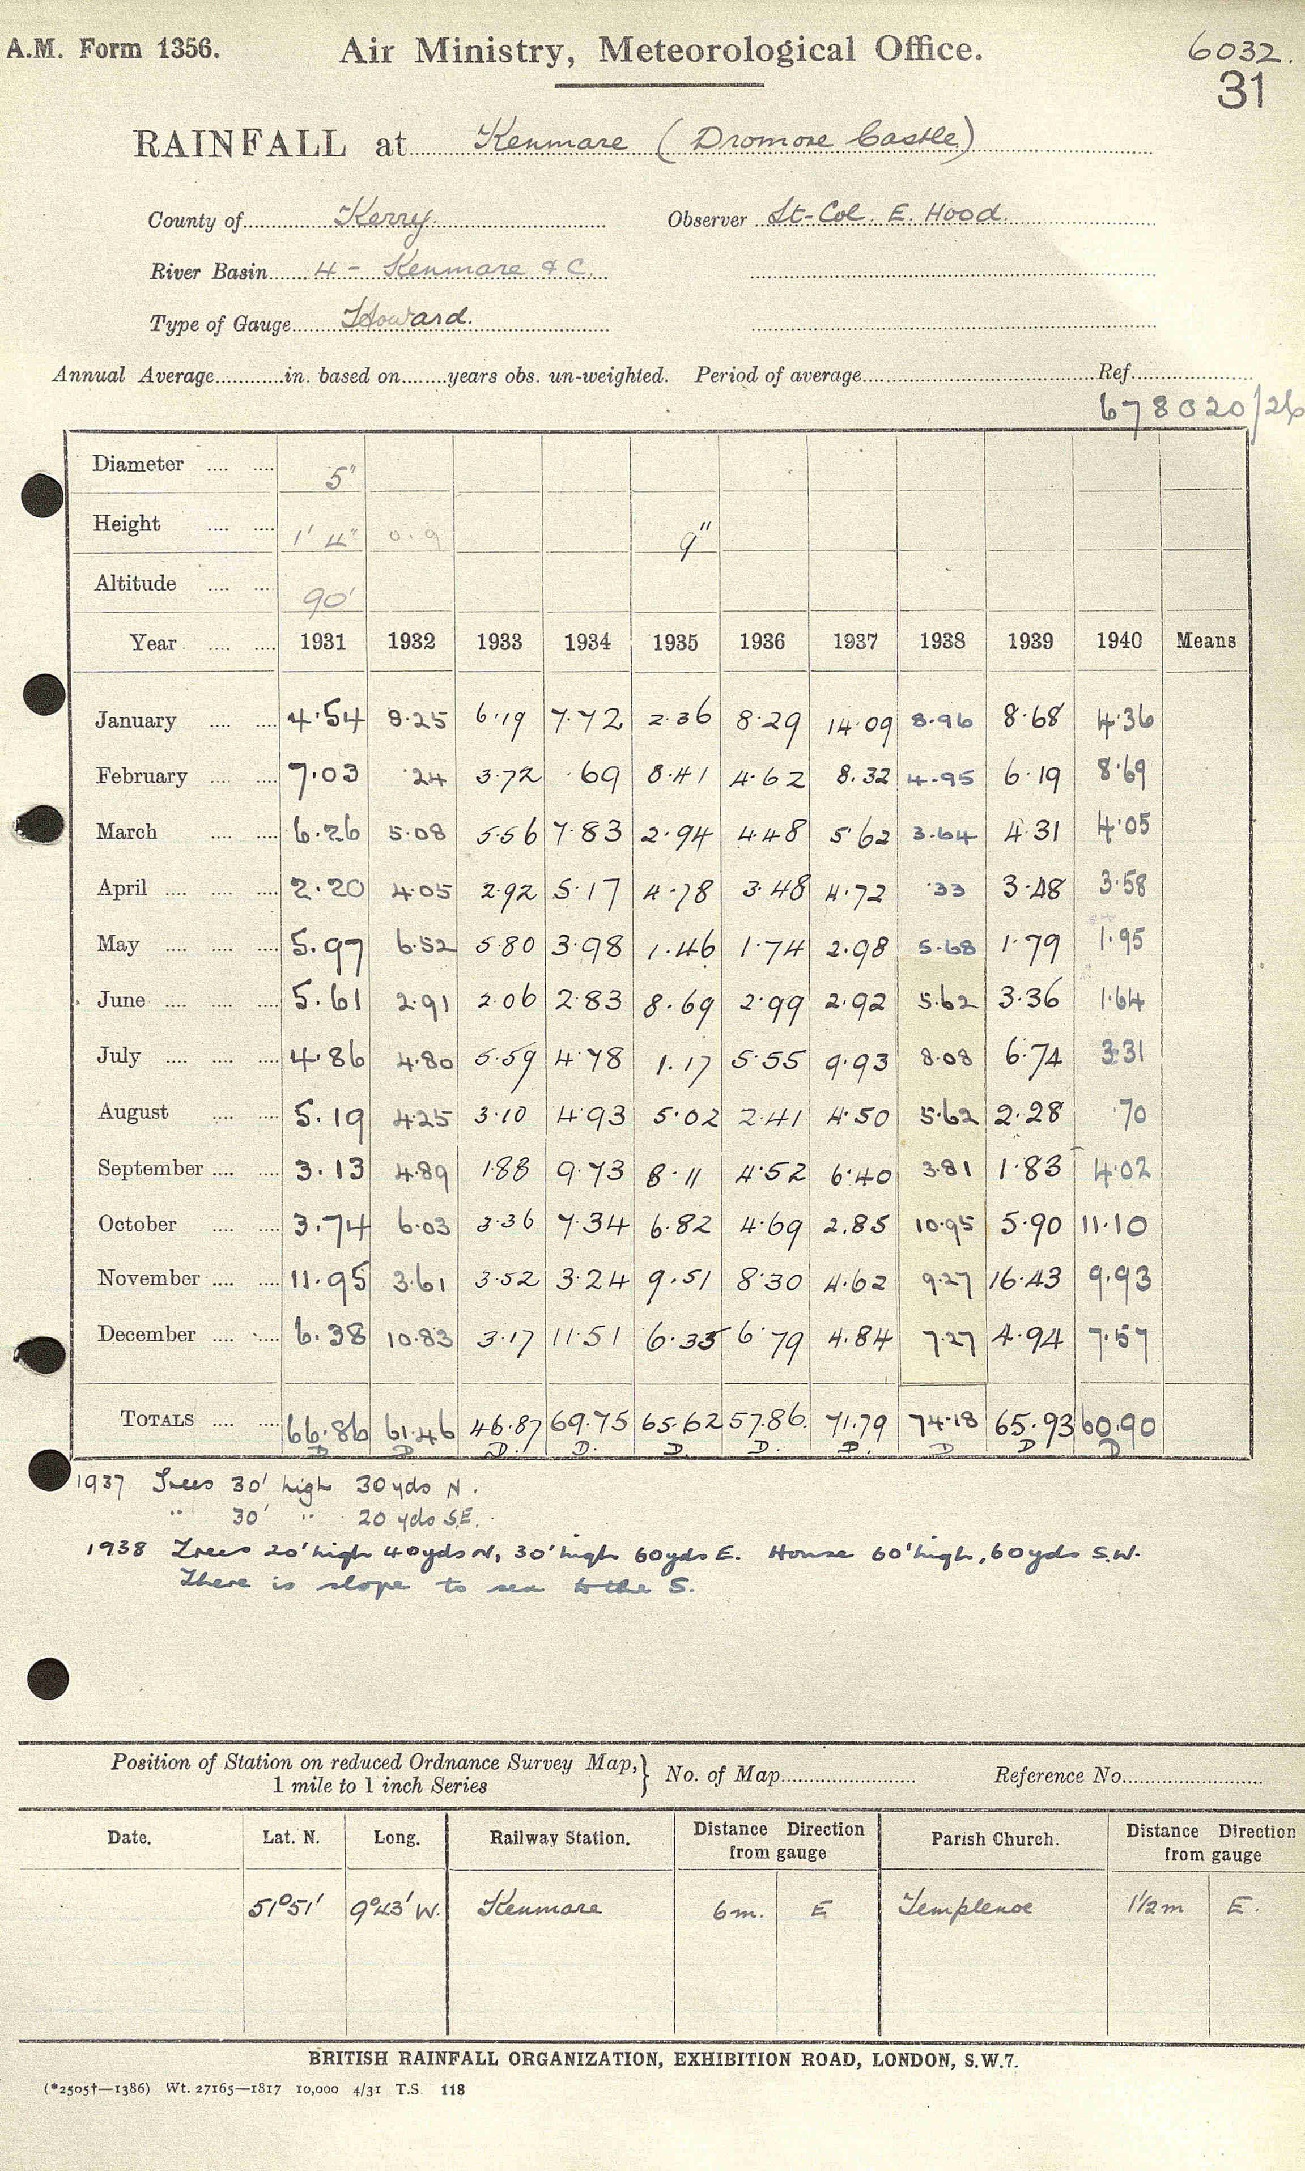 A.M. Form 1356. Air Ministry, Meteorological Office. 6032.
31
RAINFALL at Kenmare (Dromore Castle)
County of Kerry. Observer Lt-Col. E. Hood.
River Basin 4 - Kenmare &C.
Type of Gauge Howard.
Annual Average in. based on years obs. un-weighted. Period of average Ref.
678020/26
Diameter 5"
Height 1' 4" 0.9 9"
Altitude 90'
Year 1931 1932 1933 1934 1935 1936 1937 1938 1939 1940 Means
January 4.54 8.25 6.19 7.72 2.36 8.29 14.09 8.96 8.68 4.36
February 7.03 .24 3.72 .69 8.41 4.62 8.32 4.95 6.19 8.69
March 6.26 5.08 5.56 7.83 2.94 4.48 5.62 3.64 4.31 4.05
April 2.20 4.05 2.92 5.17 4.78 3.48 4.72 .33 3.48 3.58
May 5.97 6.52 5.80 3.98 1.46 1.74 2.98 5.68 1.79 1.95
June 5.61 2.91 2.06 2.83 8.69 2.99 2.92 5.62 3.36 1.64
July 4.86 4.80 5.59 4.78 1.17 5.55 9.93 8.08 6.74 3.31
August 5.19 4.25 3.10 4.93 5.02 2.41 4.50 5.62 2.28 .70
September 3.13 4.89 1.88 9.73 8.11 4.52 6.40 3.81 1.83 4.02
October 3.74 6.03 3.36 7.34 6.82 4.69 2.85 10.95 5.90 11.10
November 11.95 3.61 3.52 3.24 9.51 8.30 4.62 9.27 16.43 9.93
December 6.38 10.83 3.17 11.51 6.35 6.79 4.84 7.27 4.94 7.57
TOTALS 66.86 61.46 46.87 69.75 65.62 57.86. 71.79 74.18 65.93 60.90
D D D. D. D. D. D. D D D
1937 Trees 30' high 30 yds N.
" 30' " 20 yds S.E.
1938 Trees 20' high 40 yds N, 30' high 60 yds E. House 60' high, 60 yds S.W.
There is slope to sea to the S.
Position of Station on reduced Ordnance Survey Map, 1 mile to 1 inch Series } No. of Map Reference No.
Date. Lat. N. Long. Railway Station. Distance Direction from gauge Parish Church. Distance Direction from gauge
51°51' 9°43' W. Kenmare 6m. E Templenoe 1½m E.
BRITISH RAINFALL ORGANIZATION, EXHIBITION ROAD, LONDON, S.W.7.
(*2505†—1386) Wt. 27165—1817 10,000 4/31 T.S. 118